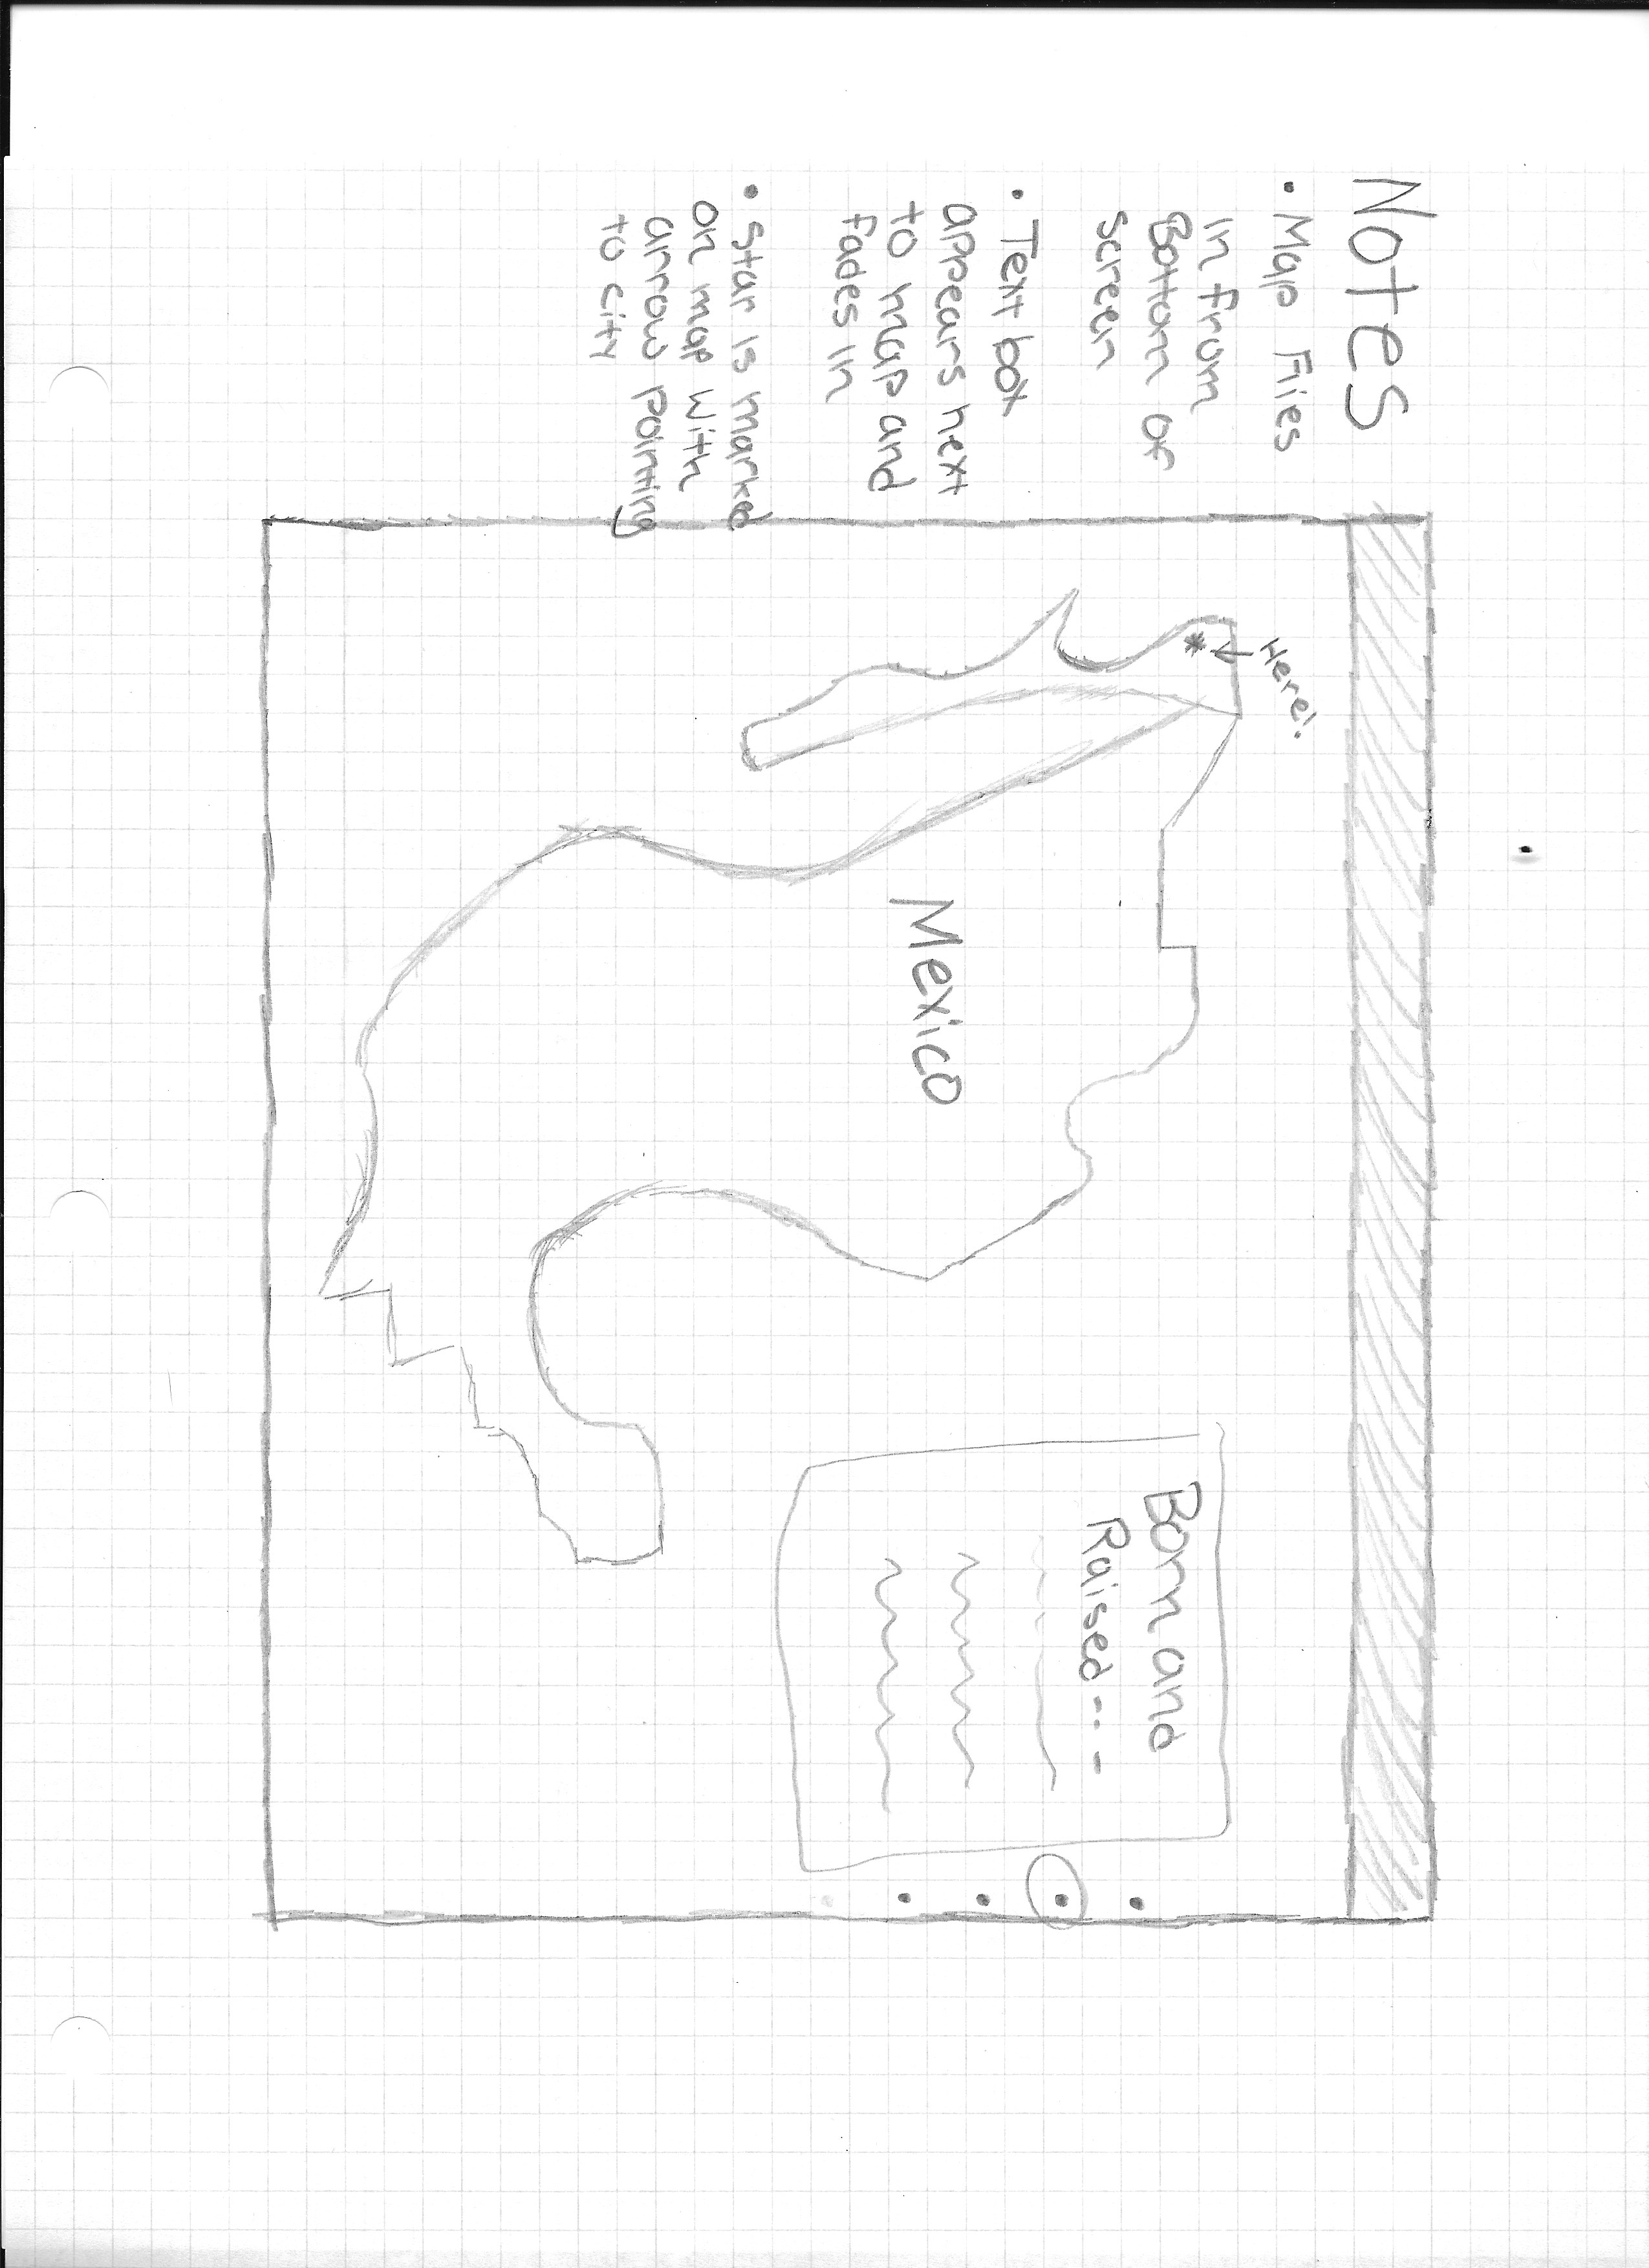 Notes
• Map Flies
in from
Bottom of
screen
• Text box
appears next
to map and
fades in
• Star is marked
on map with
arrow pointing
to city
Here!
*
Mexico
Born and
Raised---